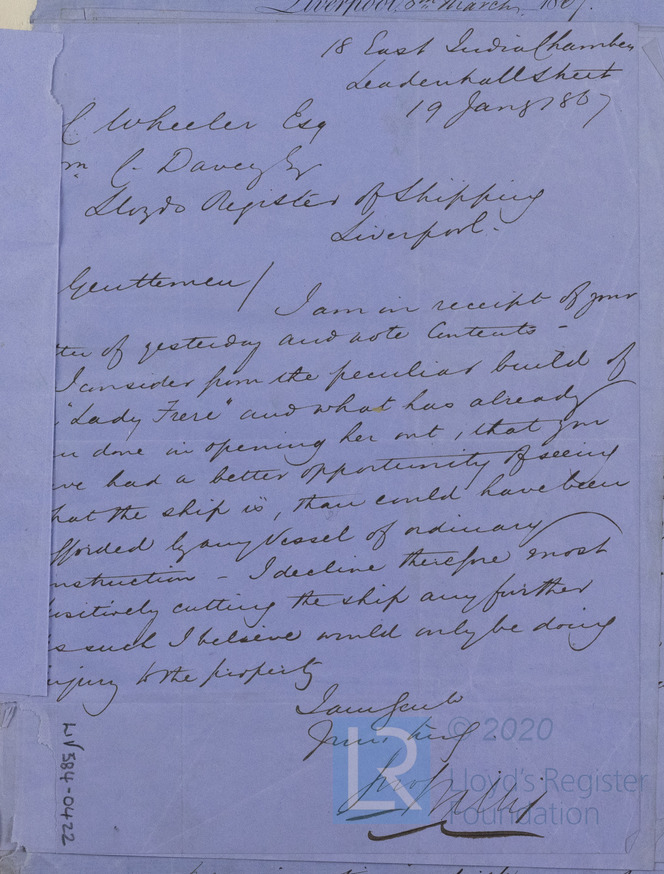 Liverpool, 8th March, 1867.
18 East India Chambers
Leadenhall Street
19 Jany 1867
C Wheeler Esq
m C. Davey Esq
Lloyds Register of Shipping
Liverpool.
Gentlemen/
I am in receipt of your
tter of yesterday and note Contents -
I consider from the peculiar build of
"Lady Frere" and what has already
n done in opening her out, that you
ve had a better opportunity of seeing
hat the ship is, than could have been
fforded by any Vessel of ordinary
nstruction - I decline therefore most
ositively cutting the ship any further
s such I believe would only be doing
njury to the property
I am Gents
Willis
LR
© 2020
Lloyd's Register
Foundation
LV584-0422